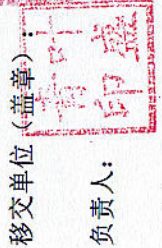 移交单位（盖章）：
负责人：